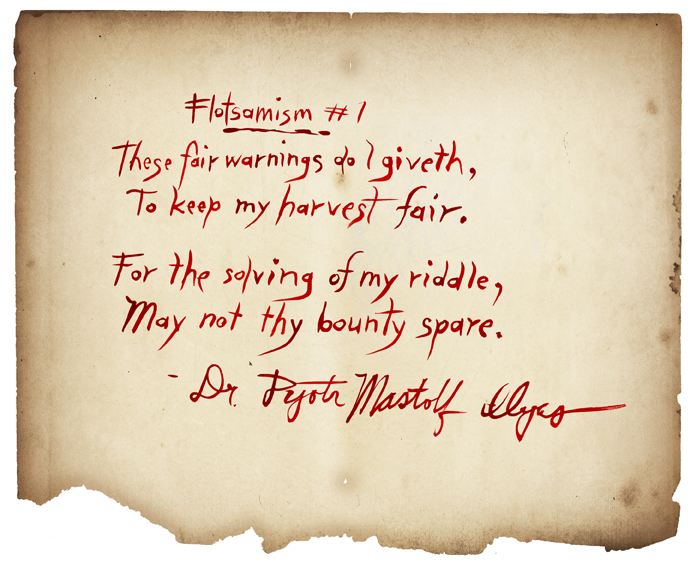 Flotsamism #1
These fair warnings do I giveth,
To keep my harvest fair.
For the solving of my riddle,
May not thy bounty spare.
- Dr. Pejotr Mastolf